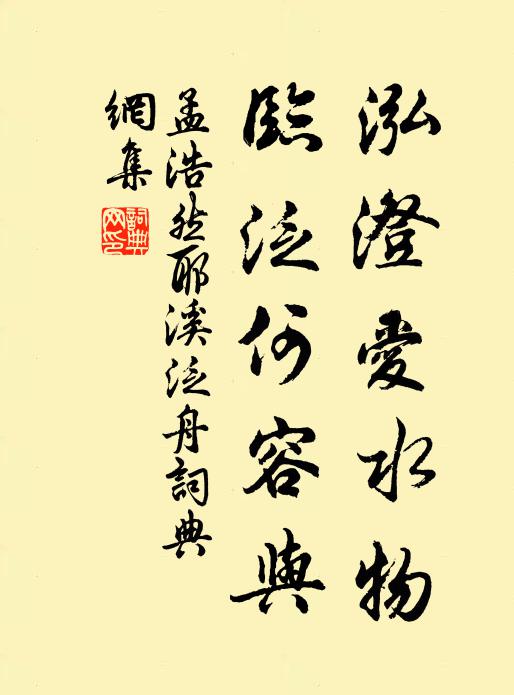 泓澄愛水物
臨泛何容與
孟浩然耶溪泛舟詞典
網集
詞典
网印